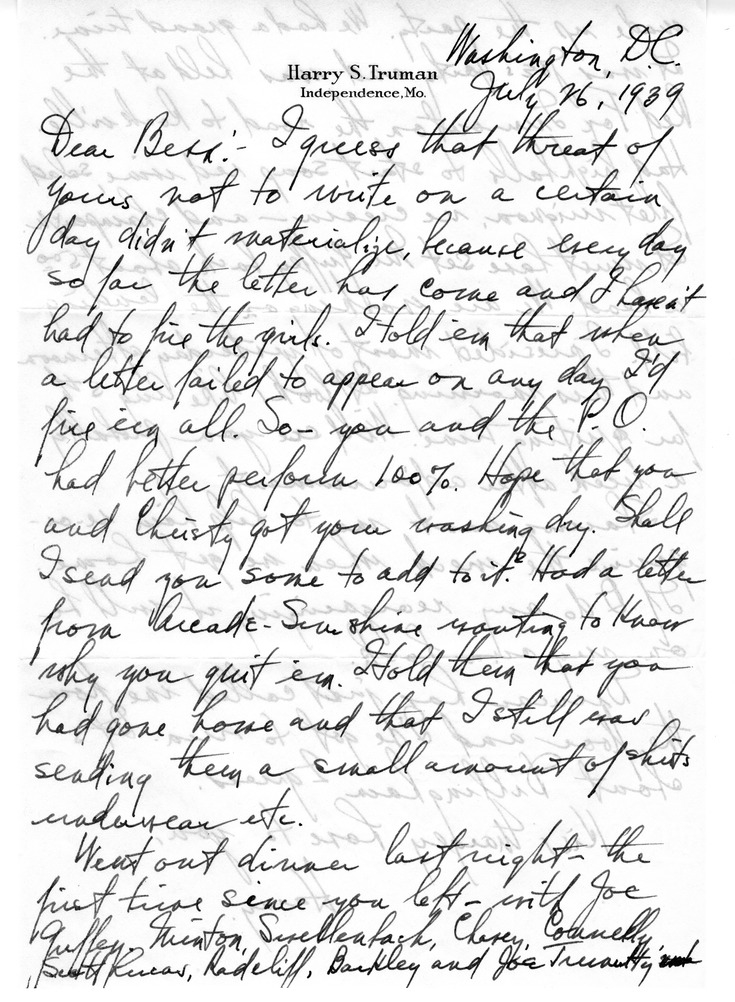 Washington, D.C.
Harry S. Truman
Independence, Mo.
July 26, 1939
Dear Bess:- I guess that threat of
yours not to write on a certain
day didn't materialize, because every day
so far the letter has come and I haven't
had to fire the girls. I told 'em that when
a letter failed to appear on any day I'd
fire 'em all. So- you and the P.O.
had better perform 100%. Hope that you
and Christy got your washing dry. Shall
I send you some to add to it? Had a letter
from Arcade-Sunshine wanting to know
why you quit 'em. I told them that you
had gone home and that I still was
sending them a small amount of shirts
underwear etc.
Went out dinner last night- the
first time since you left- with Joe
Guffey, Minton, Schwellenbach, Chavez, Connelly,
Scott Lucas, Radcliff, Barkley and Joe